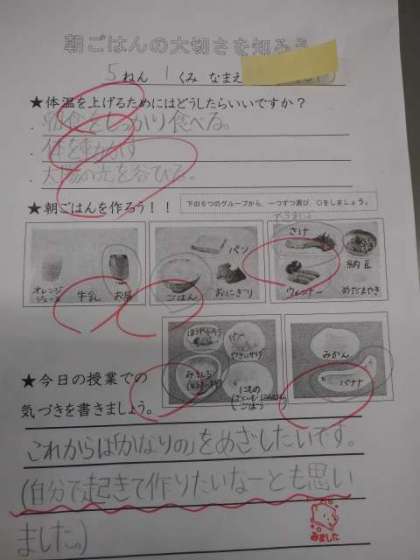 朝ごはんの大切さを知ろう
5 ねん 1 くみ なまえ
★体温を上げるためにはどうしたらいいですか？
・朝食をしっかり食べる。
・体を動かす
・太陽の光を浴びる。
★朝ごはんを作ろう！！
下の５つのグループから、一つずつ選び、○をしましょう。
オレンジジュース 牛乳 お茶
パン ごはん おにぎり
さけ 納豆 ウィンナー めだまやき
みそしる
みかん バナナ
★今日の授業での
気づきを書きましょう。
これからは「かなりの」をめざしたいです。
(自分で起きて作りたいなーとも思い
ました。)
みました